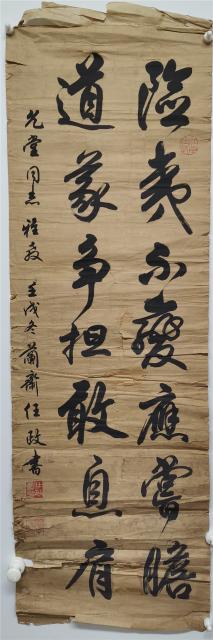 險夷不變應嘗膽
道義爭担敢息肩
光堂同志雅教 壬戌冬蘭齋任政書